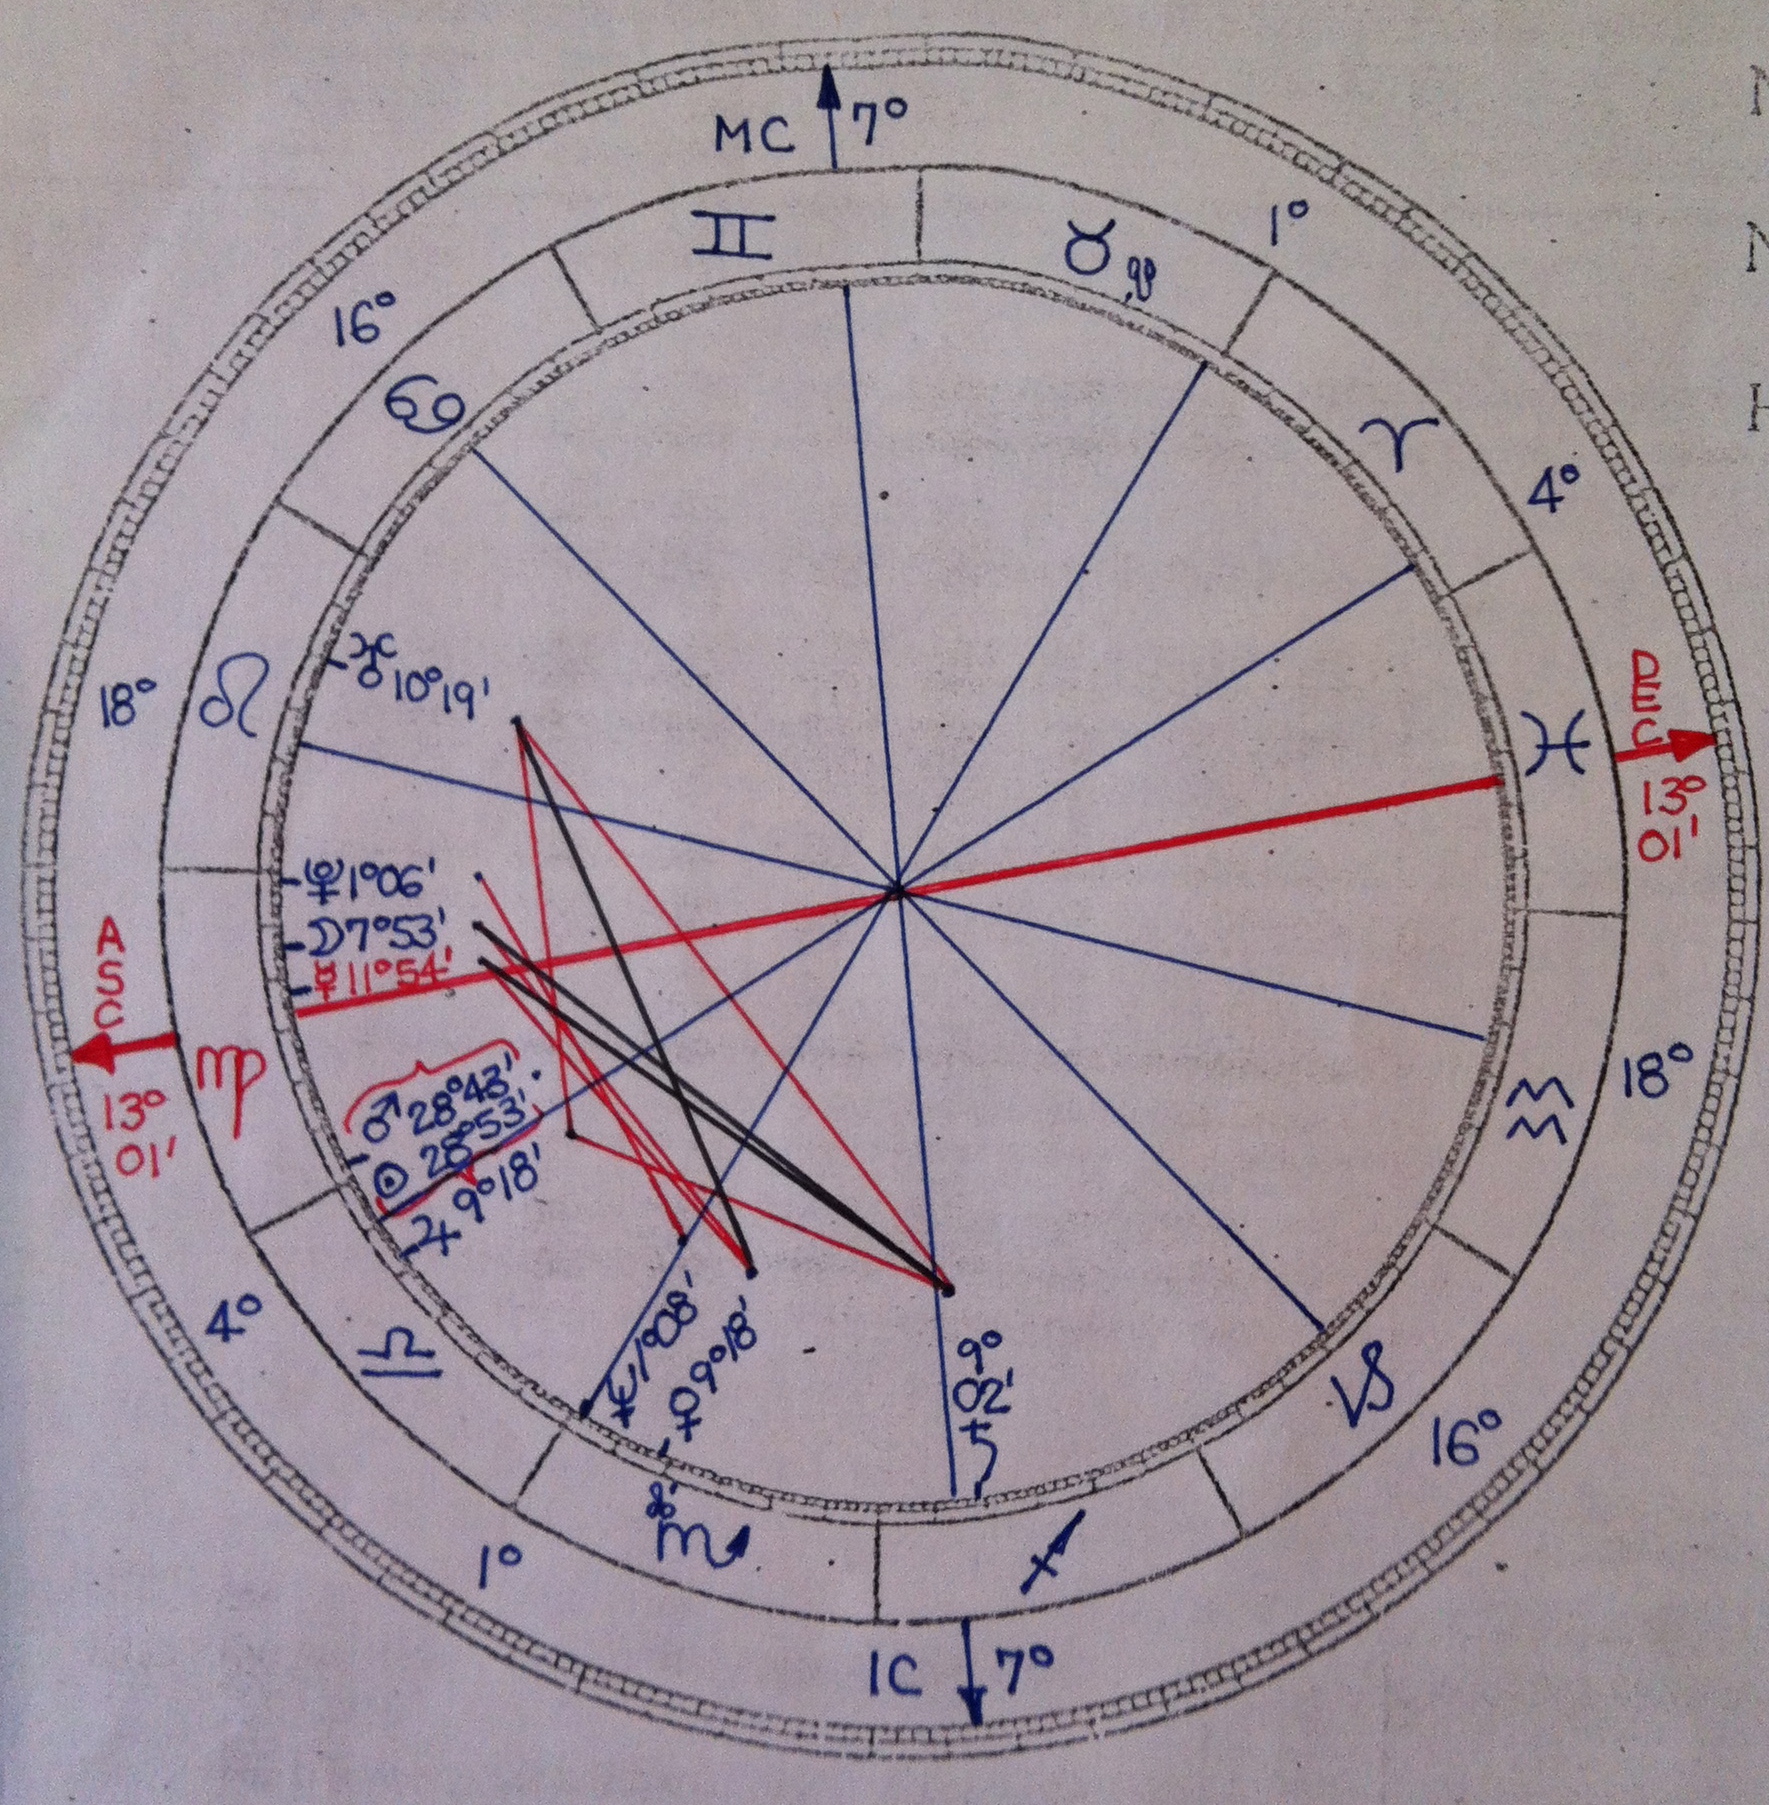 MC 7°
1°
♊
♉
16°
♋
♈
4°
♅ 10°19'
18° ♌
DEC
♓
13°
01'
♇ 1°06'
☽ 7°53'
☿ 11°54'
ASC
13°
01'
♍
♂ 28°43'
☉ 28°53'
♃ 9°18'
18°
♒
4°
♎
♆ 1°08'
♀ 9°18'
9°
02'
♄
♑
16°
1°
♏
♐
IC 7°